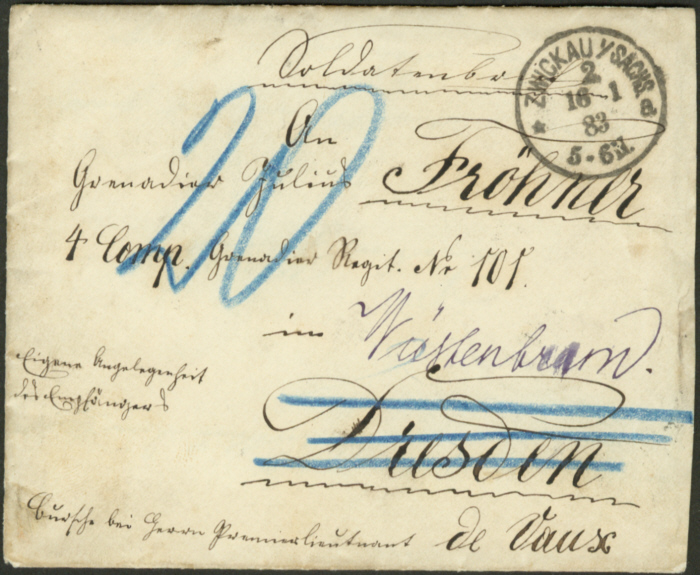 Soldatenbrief
ZWICKAU i/SACHS. a.
2.
16 1
83
5-6N.
20
An
Grenadier Julius Fröhner
4 Comp. Grenadier Regit. No 101.
in Wüstenbrand.
Eigene Angelegenheit
des Empfängers
Dresden
Bursche bei Herrn Premierlieutnant de Vaux